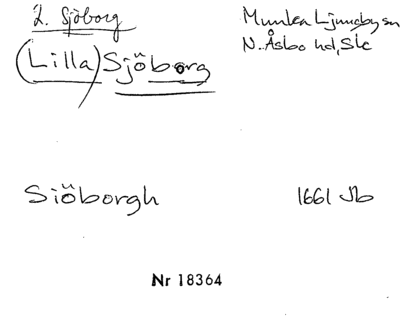 2. Sjöborg
(Lilla) Sjöborg
Munka Ljungby sn
N. Åsbo hd, Sk
Siöborgh
1661 Jb
Nr 18364